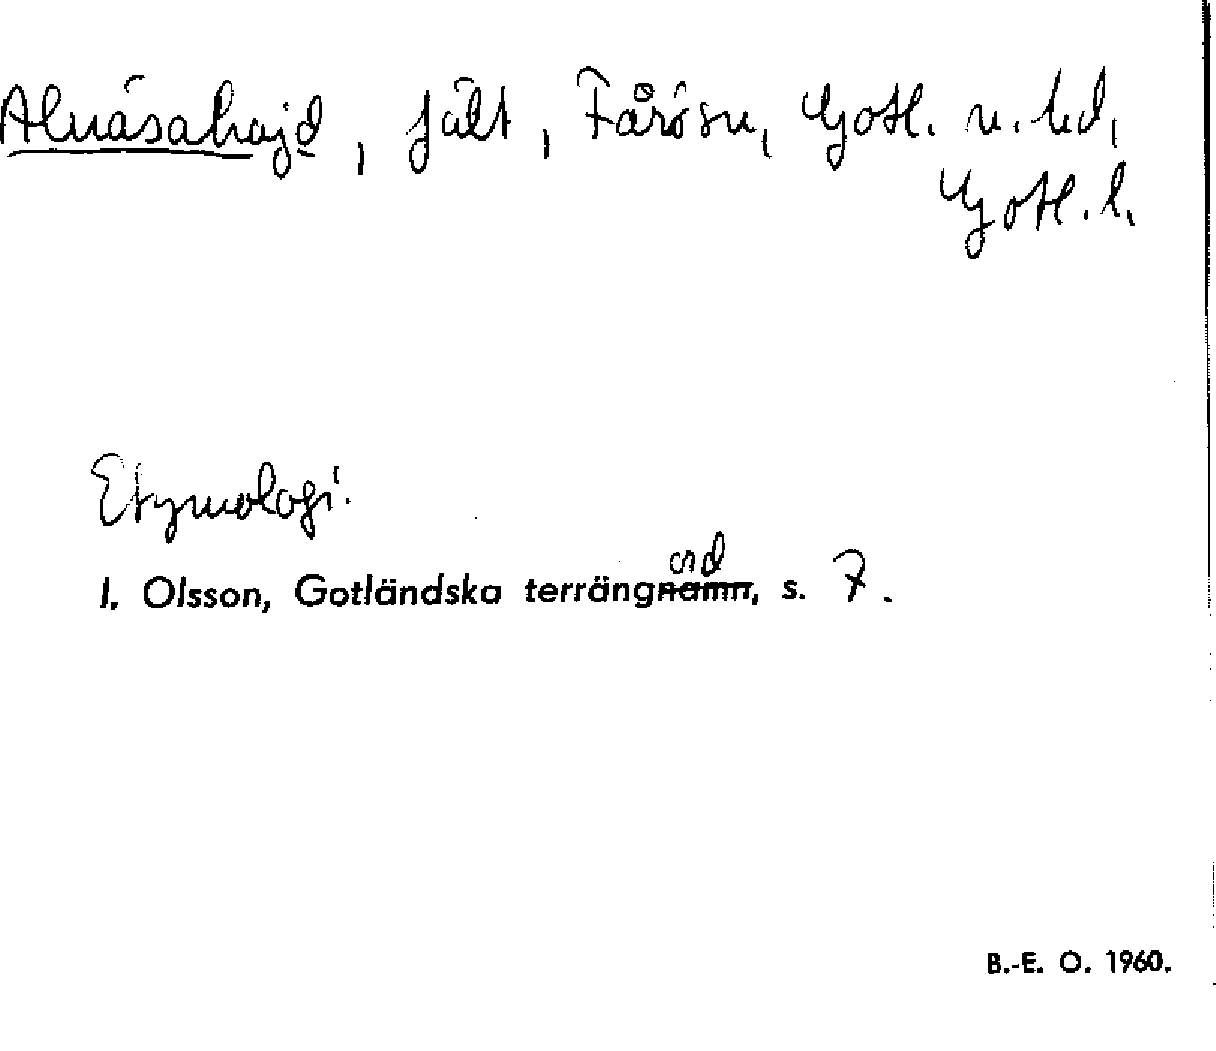 Alnäsahajd, fält, Fårösn, Gotl. n. hd,
Gotl. l.
Etymologi.
ord
I. Olsson, Gotländska terrängnamn, s. 7.
B.-E. O. 1960.